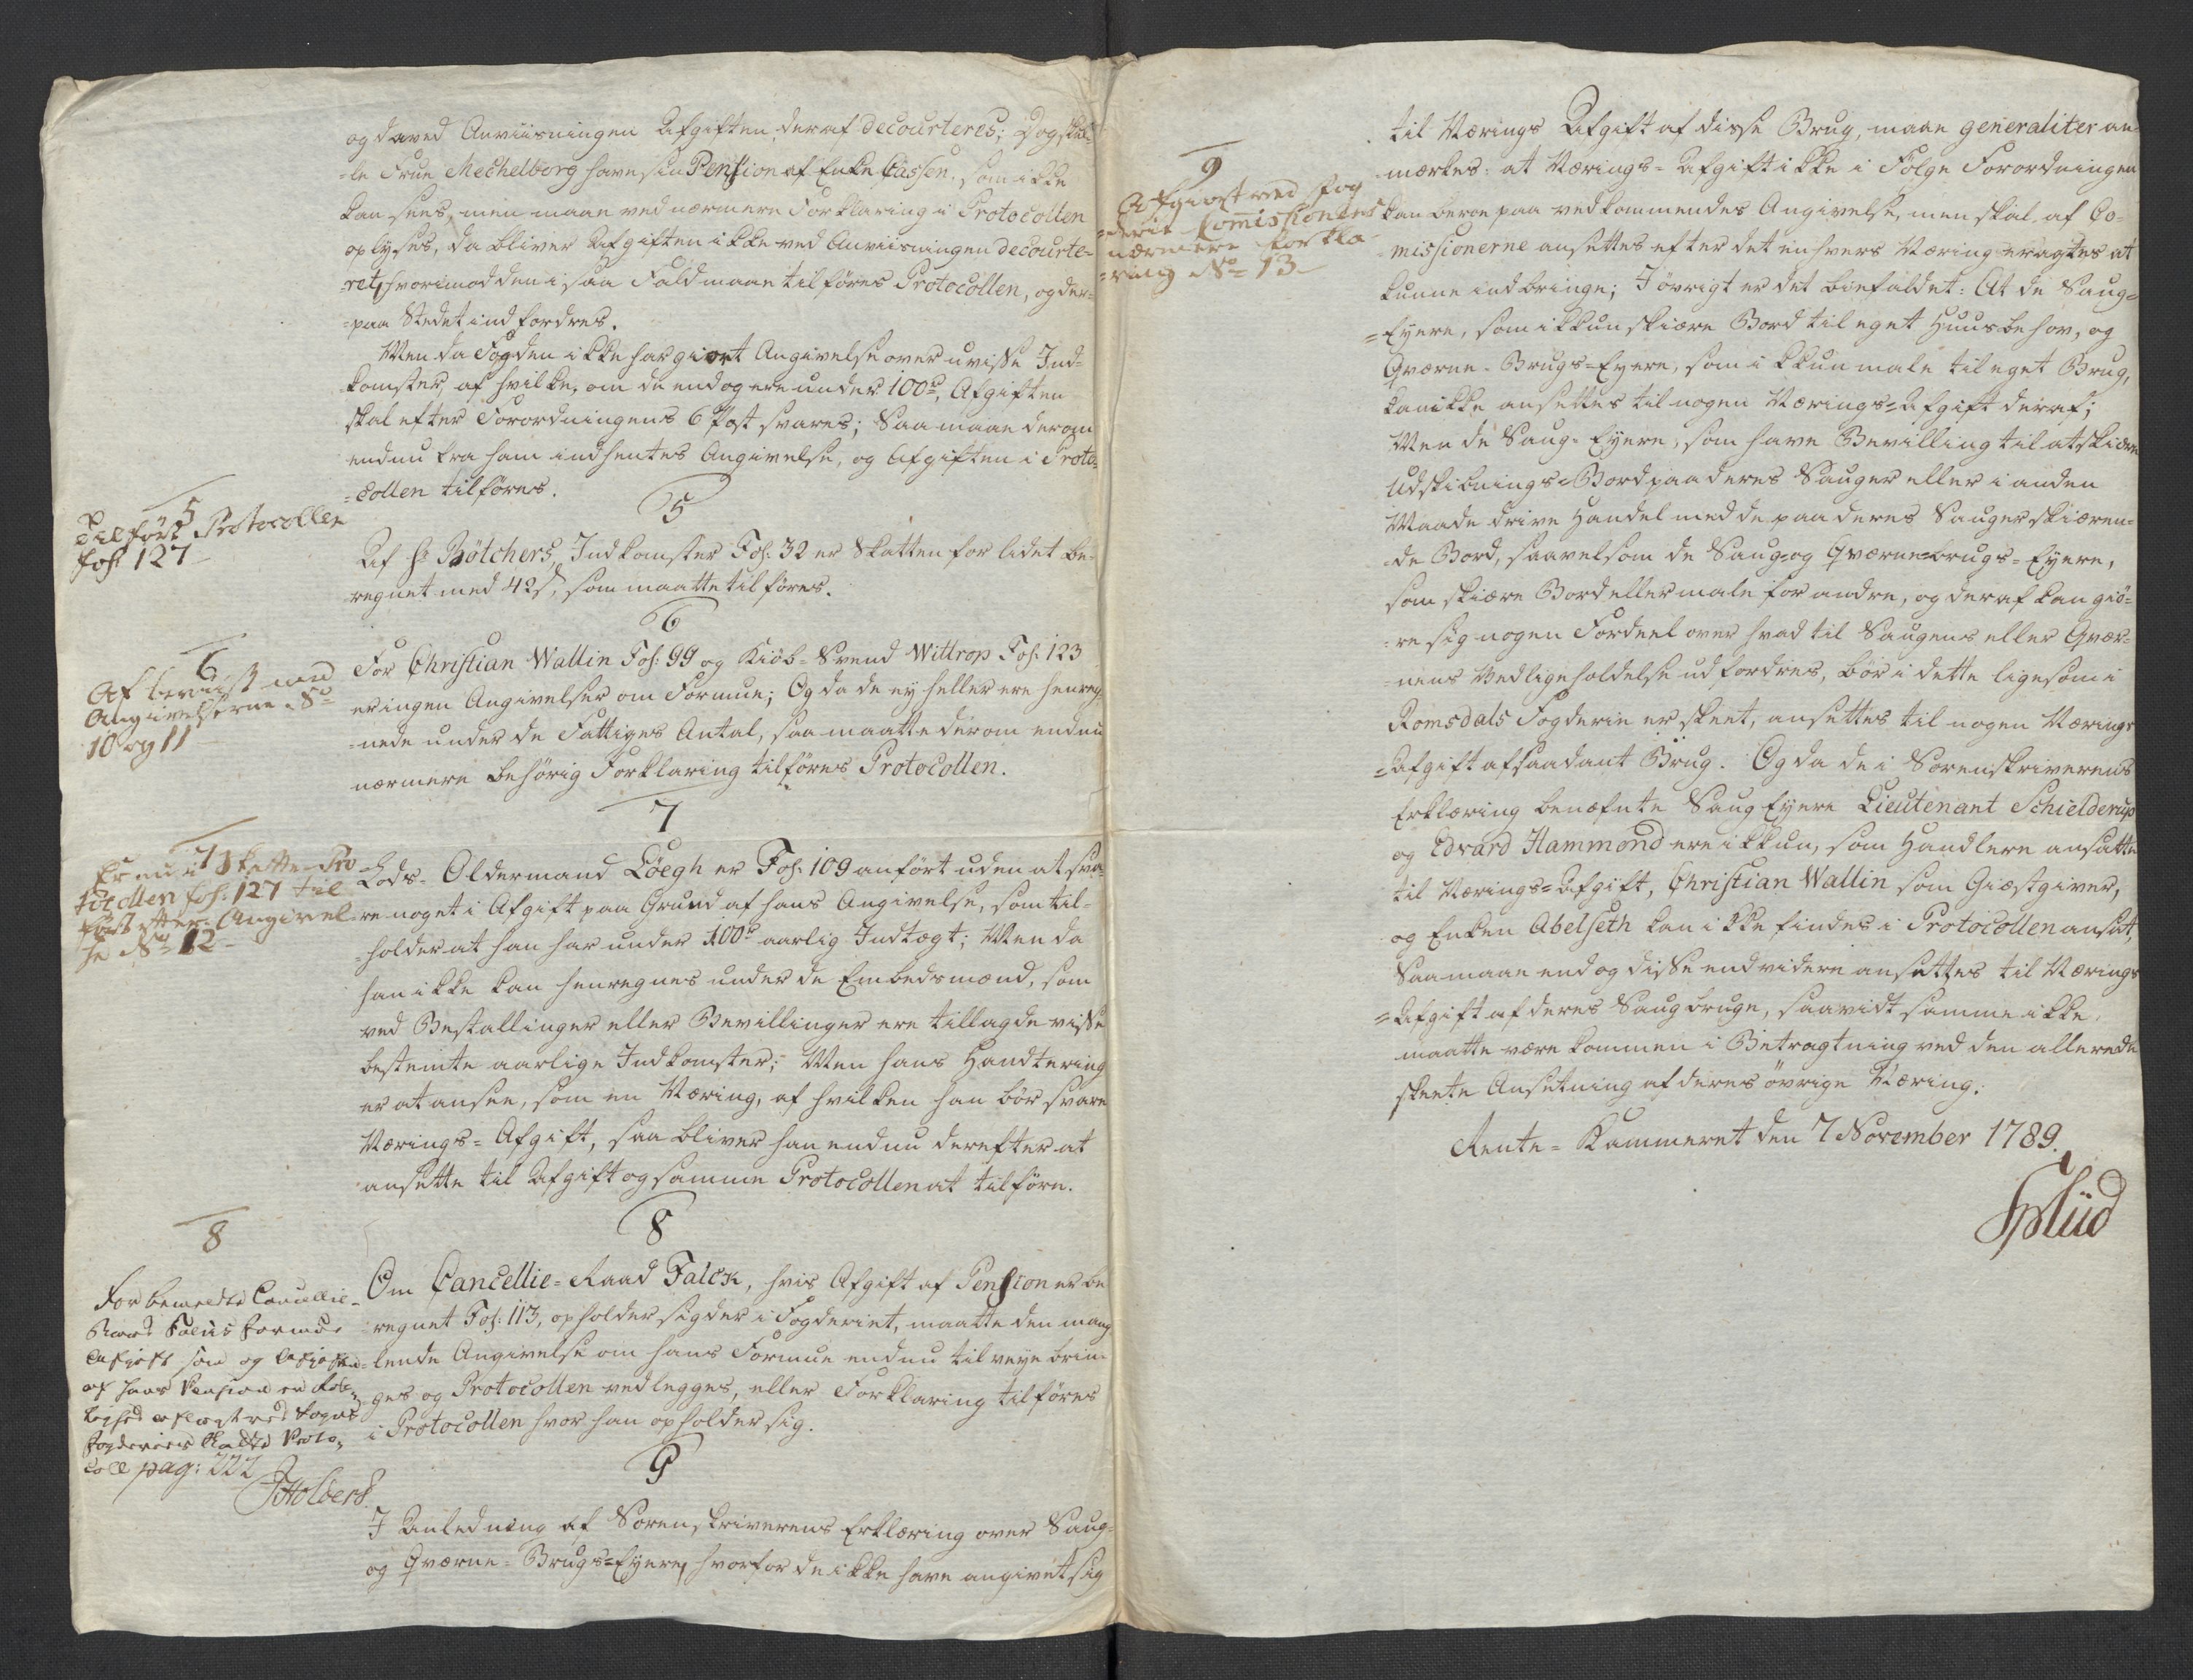 og da ved Anviisningen Afgiften deraf decourteres; Dog skul-
-le Frue Mechelborg have sin Pension af Enke Cassen, som ikke
kan sees, men maae ved nærmere Forklaring i Protocollen
oplyses, da bliver Afgiften ikke ved Anviisningen decourte-
-ret, hvorimod den i saa Fald maae tilføres Protocollen, og der-
-paa Stedet indfordres.
Men da Fogden ikke har giort Angivelse over uvisse Ind-
komster, af hvilke, om de endog ere under 100rd, Afgiften
skal efter Forordningens 6 Post svares; Saa maae derom
endnu fra ham indhentes Angivelse, og Afgiften i Proto-
-collen tilføres.
5
Tilført Protocollen
fol: 127
5
Af Hr Bötchers Indkomster Fol: 32 er Skatten for lidet be-
regnet med 42 s, som maatte tilføres.
6
Af beviist med
Angivelserne No
10 og 11
6
For Christian Wallin Fol: 99 og Kiöb-Svend Wittrop Fol: 123
er ingen Angivelser om Formue; Og da de ey heller ere henreg-
-nede under de Fattiges Antal, saa maatte derom endnu
nærmere behörig Forklaring tilföres Protocollen.
7
Er nu i Skatte-Pro
tocollen fol: 127 til
ført efter Angivel-
se No 12
7
Lods-Oldermand Löegh er Fol: 109 anført uden at sva-
-re noget i Afgift paa Grund af hans Angivelse, som til-
-holder at han har under 100rd aarlig Indtægt; Men da
han ikke kan henregnes under de Embedsmænd, som
ved Bestallinger eller Bevillinger ere tillagde visse
bestemte aarlige Indkomster; Men hans Handtering
er at ansee, som en Næring, af hvilken han bör svare
Nærings-Afgift, saa bliver han endnu derefter at
ansette til Afgift og samme Protocollen at tilföre.
8
For bemeldte Cancellie-
Raad Falcks Formue
Afgift som og Afgiften
af hans Pension er
ved Fogderiets Skatte Proto-
coll pag: 222
JHolberg
8
Om Cancellie-Raad Falck, hvis Afgift af Pension er be-
regnet Fol: 113, opholder sig der i Fogderiet, maatte den mang-
lende Angivelse om hans Formue endnu tilveyebrin-
ges og Protocollen vedlegges, eller Forklaring tilföres
i Protocollen hvor han opholder sig.
9
I Anledning af Sorenskriverens Erklæring over Saug-
og Qværne-Brugs-Eyere, hvorfor de ikke have angivet sig
9
Afgiort ved Fog
-derie Commissionens
nærmere Forkla-
-ring No 13
til Nærings Afgift af disse Brug, maae generaliter an-
mærkes: at Nærings-Afgift ikke i Fölge Forordningen
kan beroe paa vedkommendes Angivelse, men skal af Co-
missionerne ansettes efter det enhvers Næring eragtes at
kunne indbringe; I övrigt er det biefaldet: At de Saug-
-Eyere, som ikkun skiære Bord til eget Huusbehov, og
Qværne-Brugs-Eyere, som ikkun male til eget Brug,
kan ikke ansettes til nogen Nærings-Afgift deraf;
Men de Saug-Eyere, som have Bevilling til at skiære
Udskibnings-Bord paa deres Sauger eller i anden
Maade drive Handel med de paa deres Sauger skiæren-
de Bord, saavelsom de Saug- og Qværne-brugs-Eyere,
som skiære Bord eller male for andre, og deraf kan giö-
-re sig nogen Fordeel over hvad til Saugens eller Qvær-
-nens Vedligeholdelse udfordres, bör i dette ligesom i
Romsdals Fogderie er skeet, ansettes til nogen Nærings
-Afgift af saadant Brug. Og da de i Sorenskriverens
Erklæring benæfnte Saug Eyere Lieutenant Schielderup
og Edvard Hammond ere ikkun, som Handlere ansatte
til Nærings-Afgift, Christian Wallin som Giæstgiver,
og Enken Abelseth kan ikke findes i Protocollen ansat,
Saa maae endog disse endvidere ansettes til Nærings
-Afgift af deres Saugbruge, saavidt samme ikke
maatte være kommen i Betragtning ved den allerede
skeete Ansetning af deres övrige Næring.
Rente-Kammeret den 7 November 1789.